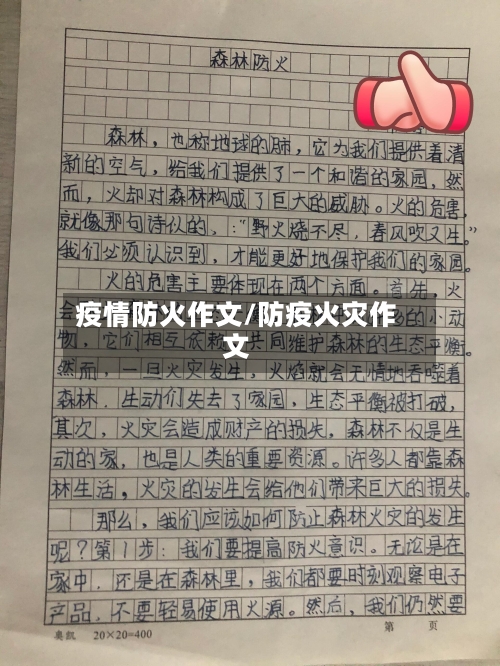 森林防火
森林，也称地球的肺，它为我们提供着清
新的空气，给我们提供了一个和谐的家园，然
而，火却对森林构成了巨大的威胁。火的危害，
就像那句诗似的、：“野火烧不尽，春风吹又生。”
我们必须认识到，才能更好地保护我们的家园。
火的危害主要体现在两个方面。首先，火
疫情防火作文/防疫火灾作
文
会 的小动
物，它们相互依赖，共同维护森林的生态平衡。
然而，一旦火灾发生，火焰就会无情地吞噬着
森林．生动们失去了家园，生态平衡被打破，
其次，火灾会造成财产的损失，森林不仅是生
动的家，也是人类的重要资源。许多人都靠森
林生活，火灾的发生会给他们带来巨大的损失。
那么，我们应该如何防止森林火灾的发生
呢？第1步：我们要提高防火意识。无论是在
家中．还是在森林里，我们都要时刻观察电子
产品．不要轻易使用火源。然后，我们仍然要
奥凯 20×20=400 第 页